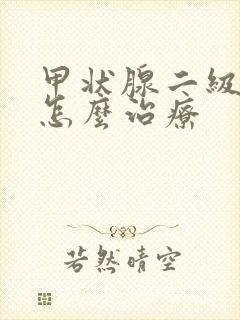 甲状腺二級
怎麼治療
若然晴空